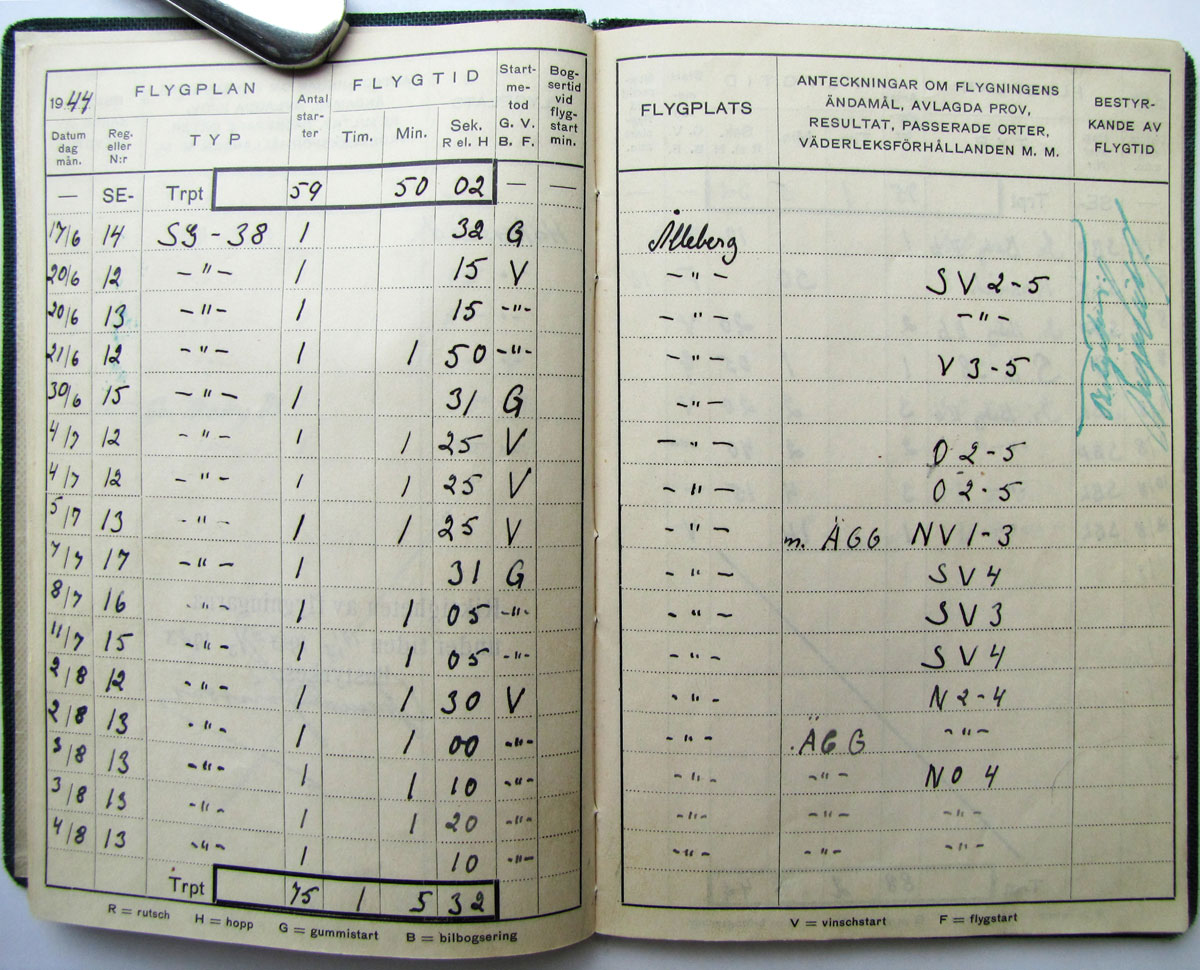 1944 FLYGPLAN Antal starter FLYGTID Startmetod G. V. B. F. Bogsertid vid flygstart min.
Datum dag mån. Reg. eller N:r TYP Tim. Min. Sek. R el. H
FLYGPLATS ANTECKNINGAR OM FLYGNINGENS ÄNDAMÅL, AVLAGDA PROV, RESULTAT, PASSERADE ORTER, VÄDERLEKSFÖRHÅLLANDEN M. M. BESTYRKANDE AV FLYGTID
— SE- Trpt 59 50 02 — —
17/6 14 SG-38 1 32 G Ålleberg
20/6 12 -"- 1 15 V -"- SV 2-5
20/6 13 -"- 1 15 -"- -"- -"-
21/6 12 -"- 1 1 50 -"- -"- V 3-5
30/6 15 -"- 1 31 G -"-
4/7 12 -"- 1 1 25 V -"- O 2-5
4/7 12 -"- 1 1 25 V -"- O 2-5
5/7 13 -"- 1 1 25 V -"- m. ÄGG NV 1-3
7/7 17 -"- 1 31 G -"- SV 4
8/7 16 -"- 1 1 05 -"- -"- SV 3
11/7 15 -"- 1 1 05 -"- -"- SV 4
2/8 12 -"- 1 1 30 V -"- N 2-4
2/8 13 -"- 1 1 00 -"- -"- ÄGG -"-
3/8 13 -"- 1 1 10 -"- -"- -"- NO 4
3/8 13 -"- 1 1 20 -"- -"- -"- -"-
4/8 13 -"- 1 10 -"- -"- -"- -"-
Trpt 75 1 5 32
R = rutsch H = hopp G = gummistart B = bilbogsering
V = vinschstart F = flygstart